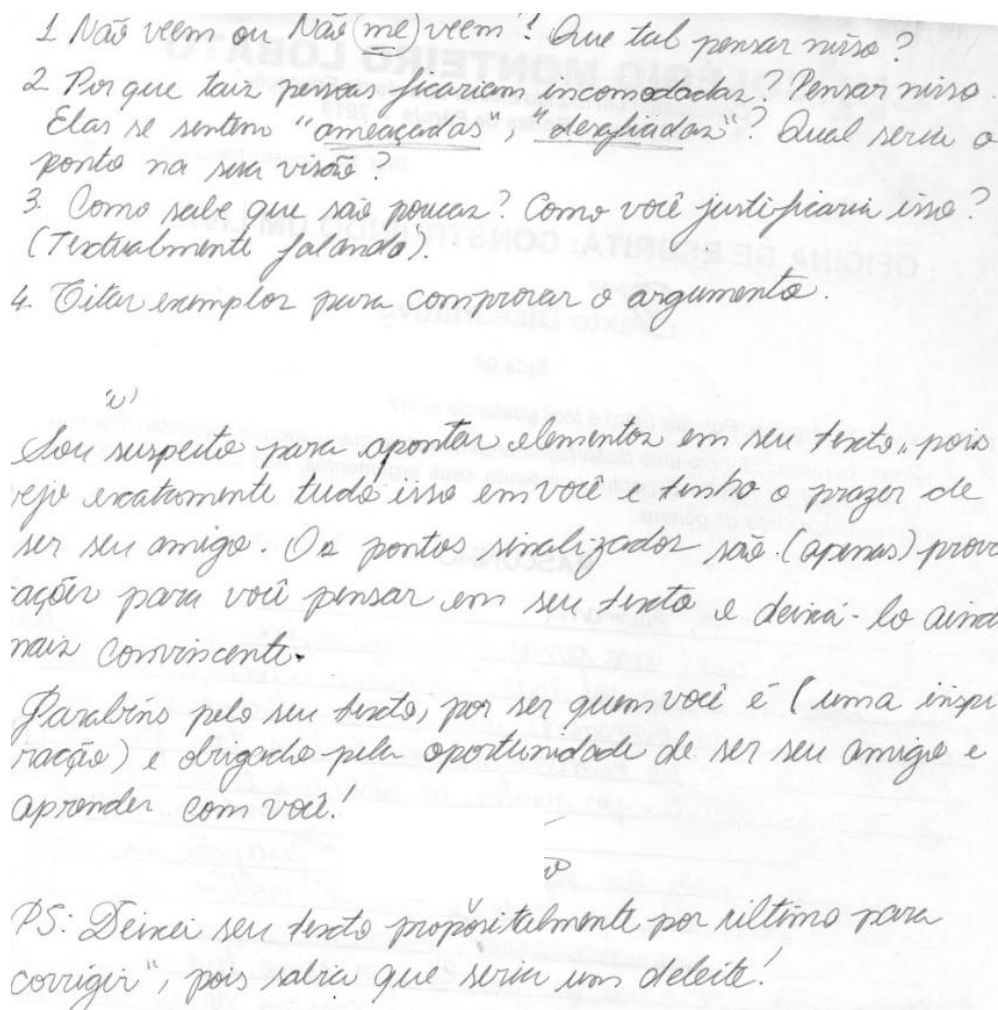 1 Não veem ou Não (me) veem? Que tal pensar nisso?
2. Por que tais pessoas ficariam incomodadas? Pensar nisso.
Elas se sentem "ameaçadas", "desafiadas"? Qual seria o
ponto na sua visão?
3. Como sabe que são poucas? Como você justificaria isso?
(Textualmente falando).
4. Citar exemplos para comprovar o argumento.
Sou suspeito para apontar elementos em seu texto, pois
vejo exatamente tudo isso em você e tenho o prazer de
ser seu amigo. Os pontos sinalizados são (apenas) provo
cações para você pensar em seu texto e deixá-lo aind
mais convincente.
Parabéns pelo seu texto, por ser quem você é (uma inspi
ração) e obrigado pela oportunidade de ser seu amigo e
aprender com você!
PS: Deixei seu texto propositalmente por último para
corrigir", pois sabia que seria um deleite!
COLÉGIO MONTEIRO LOBATO
2019
OFICINA DE ESCRITA: CONSTRUINDO UM
Texto Dissertativo
Aula 04